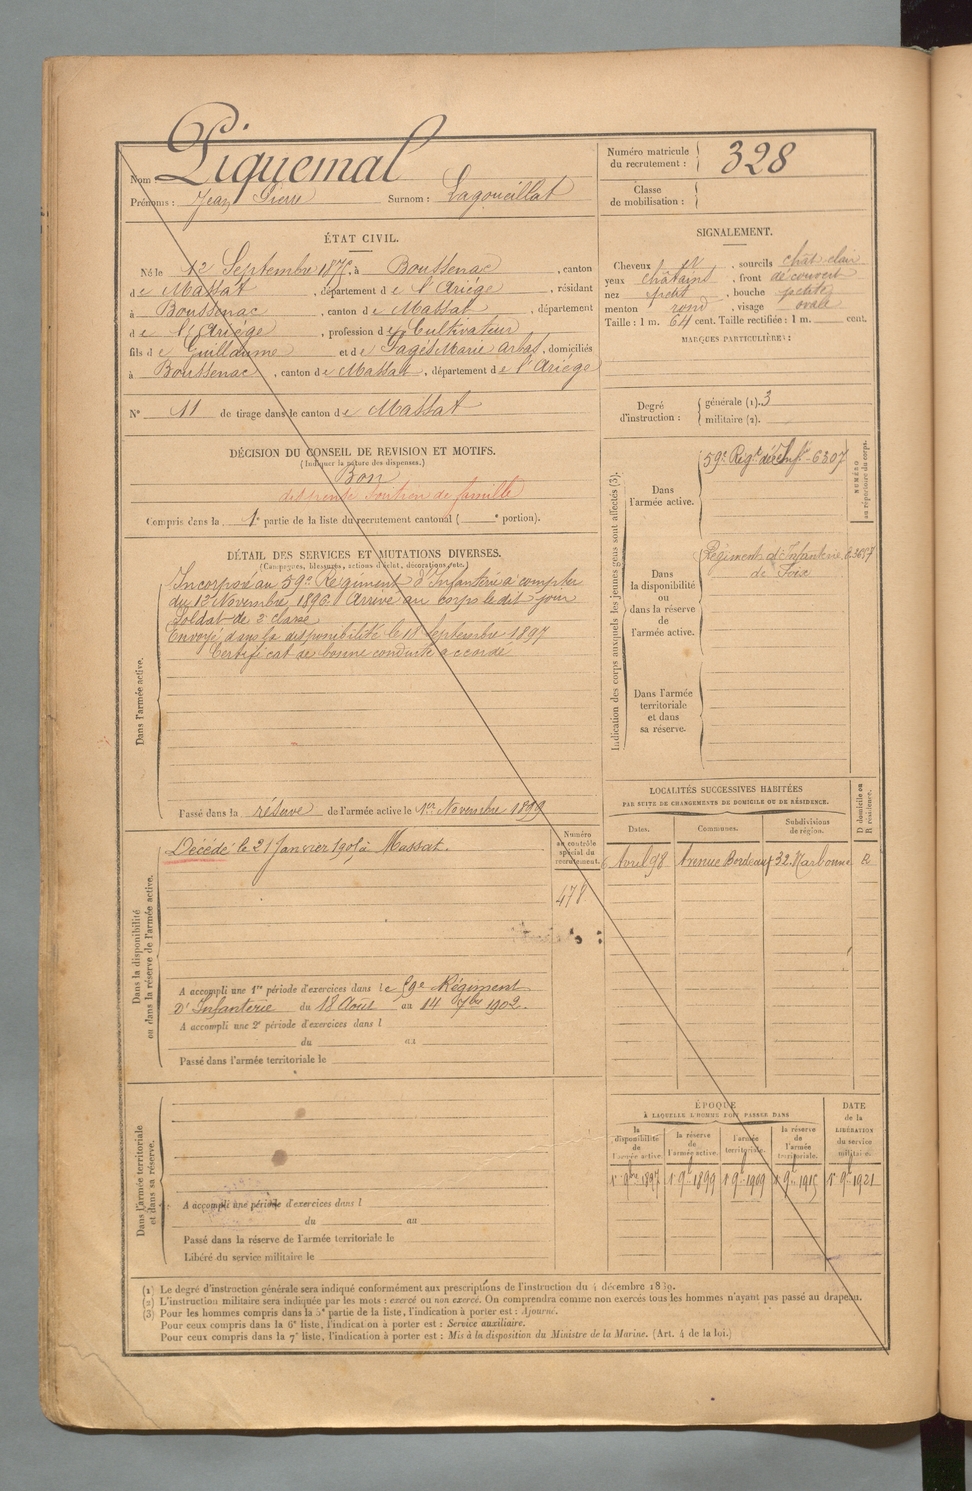 Nom : Piquemal
Prénoms : Jean Pierre Surnom : Lagoueillat
Numéro matricule du recrutement : 328
Classe de mobilisation :
ÉTAT CIVIL.
Né le 12 Septembre 1875, à Boussenac, canton
de Massat, département de l'Ariège, résidant
à Boussenac, canton de Massat, département
de l'Ariège, profession de Cultivateur
fils de Guillaume et de Pagés Marie, domiciliés
à Boussenac, canton de Massat, département de l'Ariége
N° 11 de tirage dans le canton de Massat
SIGNALEMENT.
Cheveux et, sourcils chât clair
yeux châtains, front découvert
nez petit, bouche petite
menton rond, visage ovale
Taille : 1 m. 64 cent. Taille rectifiée : 1 m. cent.
MARQUES PARTICULIÈRES :
Degré d'instruction : générale (1). 3
militaire (2).
DÉCISION DU CONSEIL DE REVISION ET MOTIFS.
(Indiquer la nature des dispenses.)
Bon
dispensé Soutien de famille
Compris dans la 1e partie de la liste du recrutement cantonal ( e portion).
DÉTAIL DES SERVICES ET MUTATIONS DIVERSES.
(Campagnes, blessures, actions d'éclat, décorations, etc.)
Dans l'armée active.
Incorporé au 59e Régiment d'Infanterie à compter
du 12 Novembre 1896. Arrivé au corps le dit jour
Soldat de 2e classe
Envoyé dans la disponibilité le 18 Septembre 1897
Certificat de bonne conduite accordé
Passé dans la réserve de l'armée active le 1er Novembre 1899
Indication des corps auxquels les jeunes gens sont affectés (3).
NUMÉRO au répertoire du corps.
Dans l'armée active.
59e Régt d'Infie 6307
Dans la disponibilité ou dans la réserve de l'armée active.
Régiment d'Infanterie
de Foix
Dans l'armée territoriale et dans sa réserve.
Dans la disponibilité ou dans la réserve de l'armée active.
Numéro au contrôle spécial du recrutement.
478
Décédé le 21 Janvier à Massat.
A accompli une 1re période d'exercices dans le 59e Régiment
D'Infanterie du 18 Août au 14 7bre 1902.
A accompli une 2e période d'exercices dans l
du au
Passé dans l'armée territoriale le
LOCALITÉS SUCCESSIVES HABITÉES
PAR SUITE DE CHANGEMENTS DE DOMICILE OU DE RÉSIDENCE.
Dates. Communes. Subdivisions de région. D domicile ou R résidence.
6 Avril 98 Avenue Bordeaux 32 Narbonne R
Dans l'armée territoriale et dans sa réserve.
A accompli une période d'exercices dans l
du au
Passé dans la réserve de l'armée territoriale le
Libéré du service militaire le
ÉPOQUE
À LAQUELLE L'HOMME DOIT PASSER DANS
la disponibilité de l'armée active. la réserve de l'armée active. l'armée territoriale. la réserve de l'armée territoriale. DATE de la LIBÉRATION du service militaire.
1er 9bre 1897 1er 9bre 1899 1er 9bre 1909 1er 9bre 1915 1er 9bre 1921
(1) Le degré d'instruction générale sera indiqué conformément aux prescriptions de l'instruction du 4 décembre 1889.
(2) L'instruction militaire sera indiquée par les mots : exercé ou non exercé. On comprendra comme non exercés tous les hommes n'ayant pas passé au drapeau.
(3) Pour les hommes compris dans la 5e partie de la liste, l'indication à porter est : Ajourné.
Pour ceux compris dans la 6e liste, l'indication à porter est : Service auxiliaire.
Pour ceux compris dans la 7e liste, l'indication à porter est : Mis à la disposition du Ministre de la Marine. (Art. 4 de la loi.)